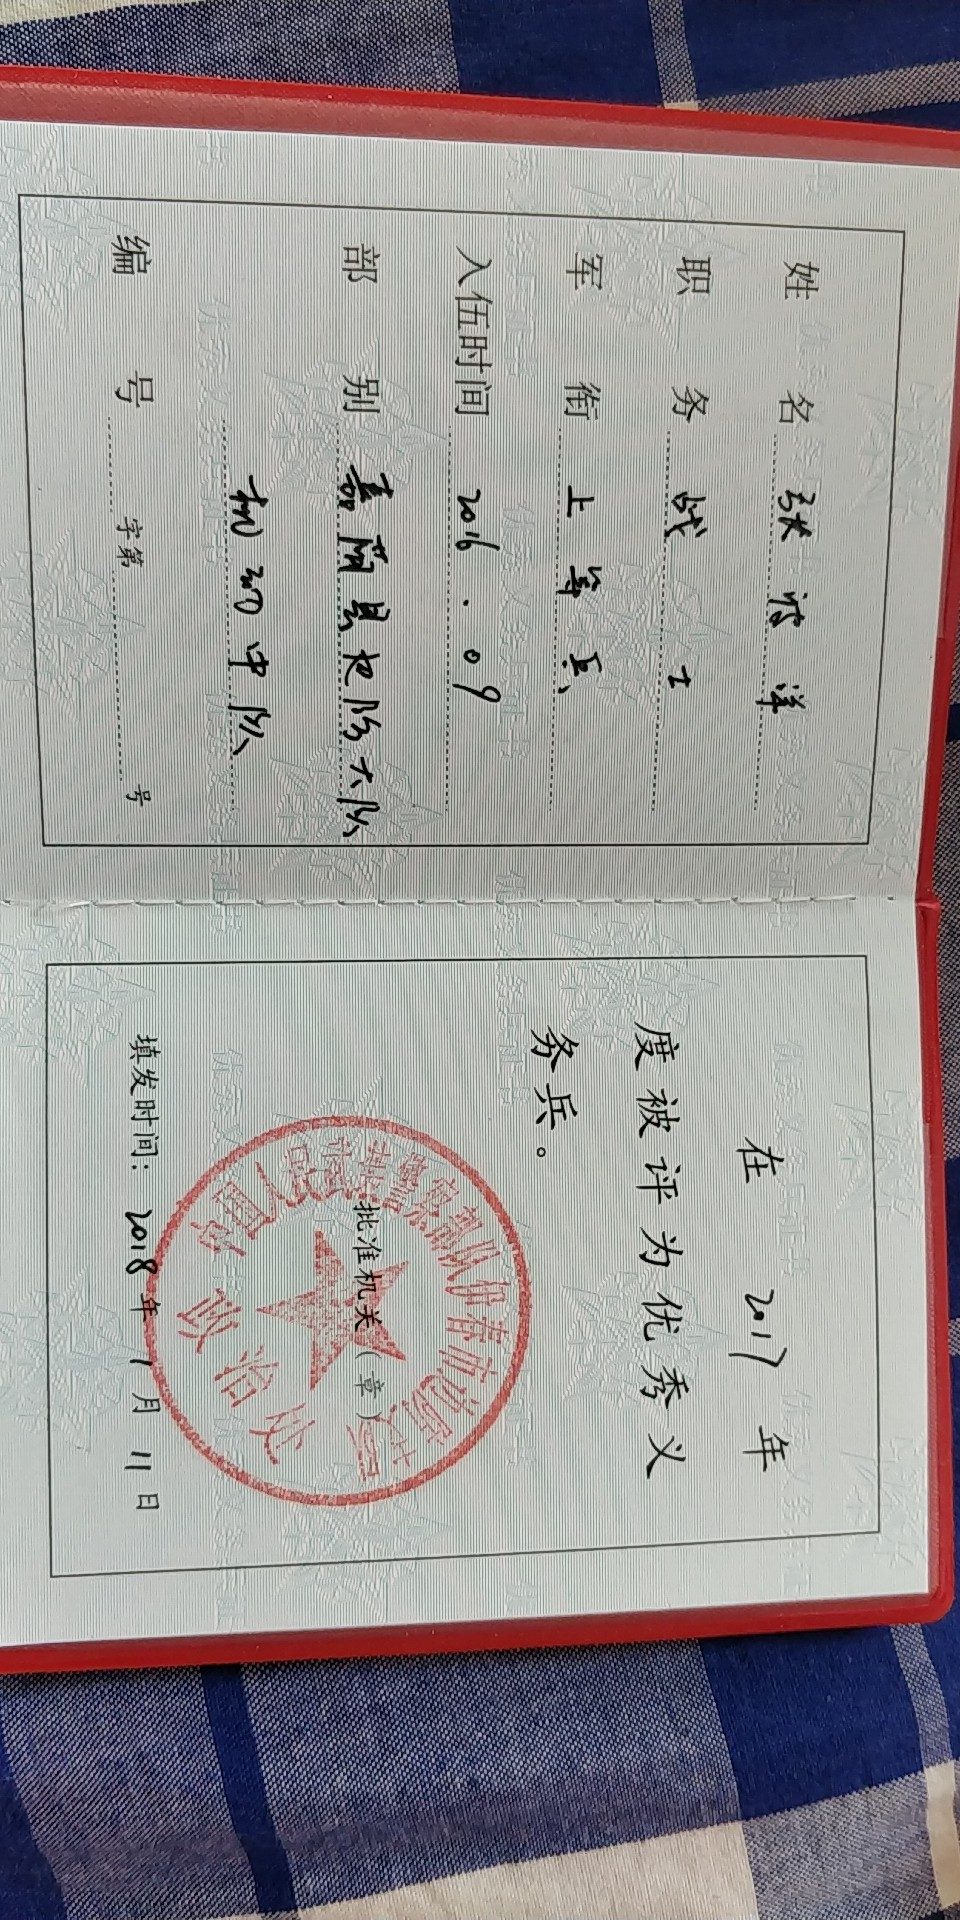 姓名 张波洋
职务 战士
军衔 上等兵
入伍时间 2016.09
部别 嘉荫县边防大队
机动中队
编号 字第 号
在 2017 年
度被评为优秀义
务兵。
批准机关（章）
中国人民武装警察部队伊春市边防支队
政治处
填发时间：2018年1月11日